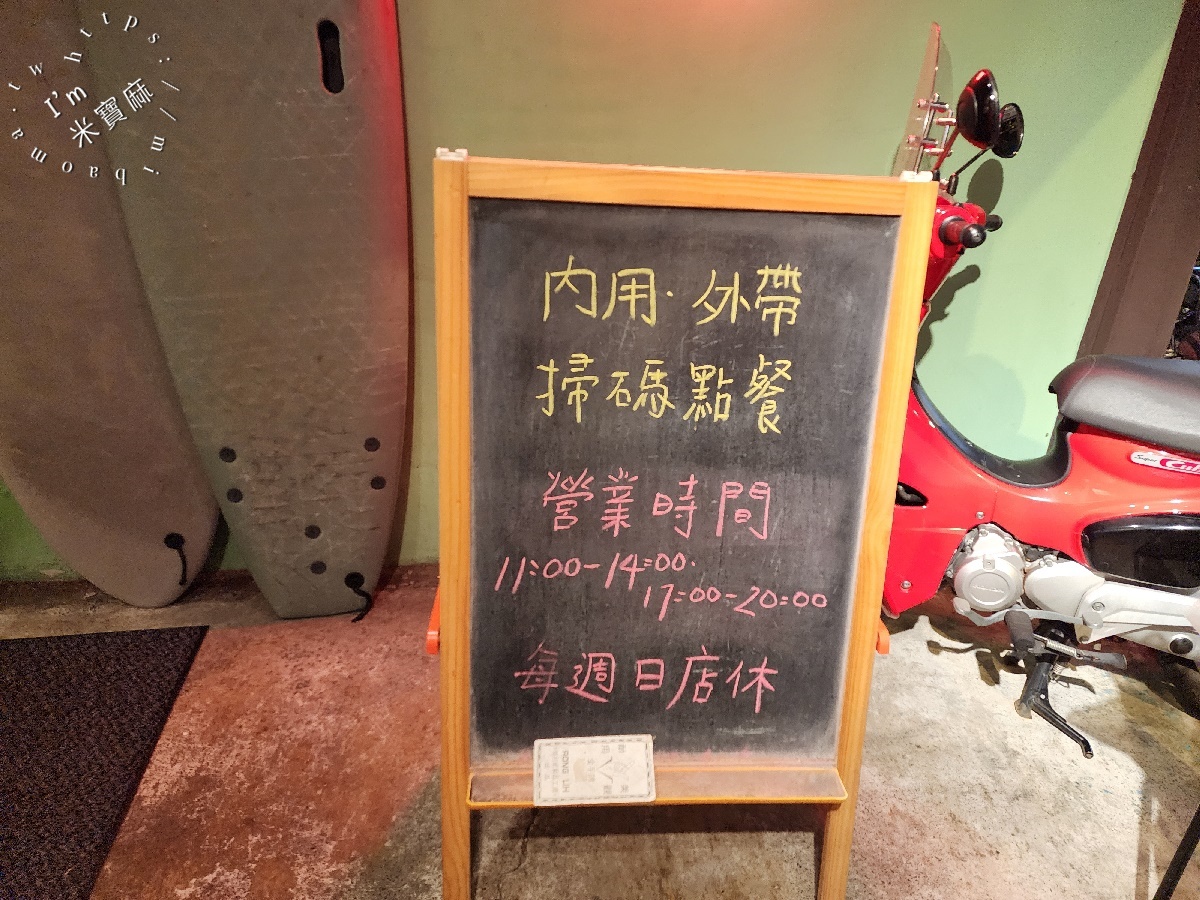 https://mibaoma.tw
I'm
米寶麻
內用·外帶
掃碼點餐
營業時間
11:00-14:00.
17:00-20:00
每週日店休
RONG LIH
Super Cub